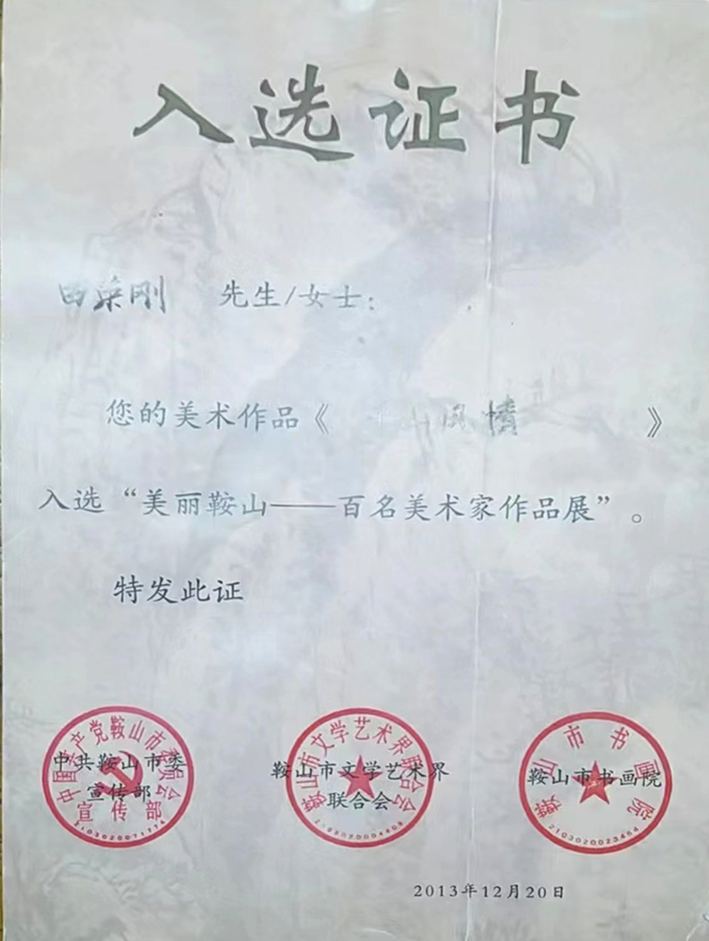 入选证书
田荣刚 先生/女士:
您的美术作品《 山风情 》
入选“美丽鞍山——百名美术家作品展”。
特发此证
中国共产党鞍山市委员会
宣传部
2103020071774
中共鞍山市委
宣传部
鞍山市文学艺术界联合会
鞍山市文学艺术界
联合会
鞍山市书画院
2103020023464
鞍山市书画院
2013年12月20日